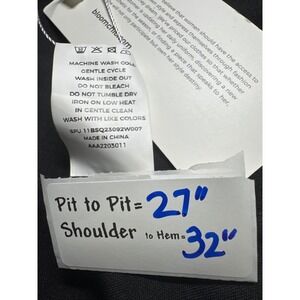 bloomchic.com
MACHINE WASH COLD
GENTLE CYCLE
WASH INSIDE OUT
DO NOT BLEACH
DO NOT TUMBLE DRY
IRON ON LOW HEAT
IN GENTLE CLEAN
WASH WITH LIKE COLORS
SPU 11BSQ23092W007
MADE IN CHINA
AAA2203011
women should have the access to
style and express themselves through fashion
Pit to Pit = 27"
Shoulder to Hem = 32"